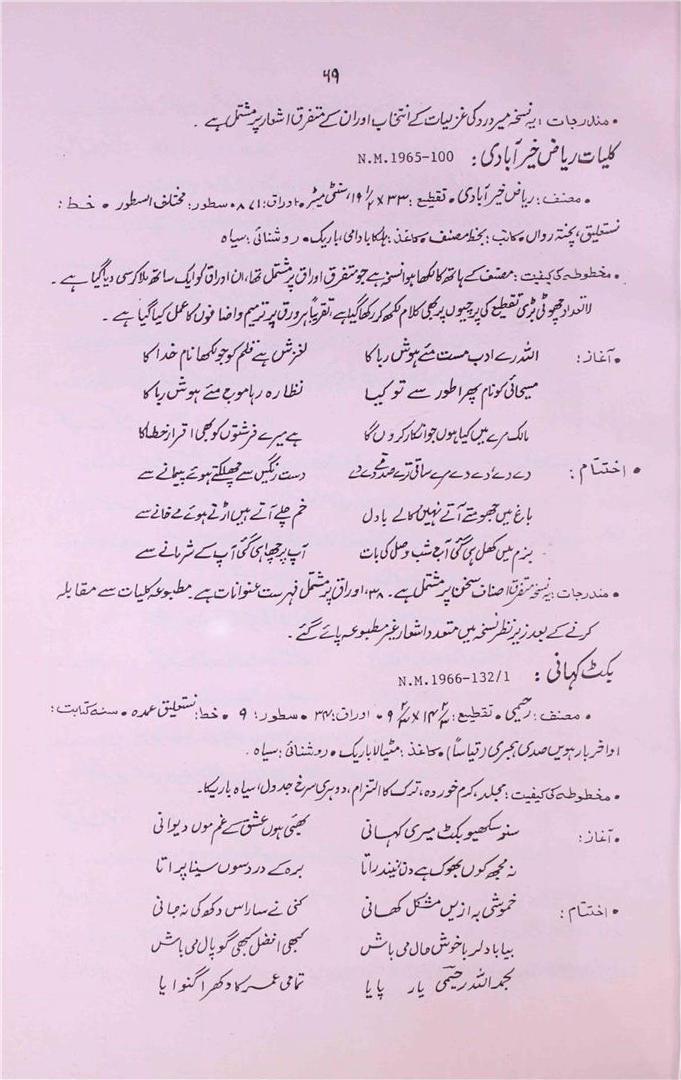 ۶۹
• مندرجات: یہ نسخہ میر درد کی غزلیات کے انتخاب اور ان کے متفرق اشعار پر مشتمل ہے۔
کلیات ریاض خیر آبادی: N.M.1965-100
• مصنف: ریاض خیر آبادی • تقطیع: ۳۳ × ۱۹ ۱/۲ سنٹی میٹر • اوراق: ۸۷۱ • سطور: مختلف السطور • خط:
نستعلیق، پختہ رواں • کاتب: بخط مصنف • کاغذ: ہلکا بادامی، باریک • روشنائی: سیاہ
• مخطوطہ کی کیفیت: مصنف کے ہاتھ کا لکھا ہوا نسخہ ہے جو متفرق اوراق پر مشتمل تھا، ان اوراق کو ایک ساتھ ملا کر سی دیا گیا ہے۔
لاتعداد چھوٹی بڑی تقطیع کی پرچیوں پر بھی کلام لکھ کر رکھا گیا ہے، تقریباً ہر ورق پر ترمیم و اضافوں کا عمل کیا گیا ہے۔
• آغاز: اللہ رے ادب مست مئے ہوش ربا کا لغزش ہے قلم کو جو لکھا نام خدا کا
مسیحائی کو نام پھر اطور سے تو کیا نظارہ رہا موج مئے ہوش ربا کا
مالک مرے میں کیا ہوں جو انکار کروں گا ہے میرے فرشتوں کو بھی اقرار خطا کا
• اختتام: دے دے دے دے مرے ساقی ترے صدقے دے دے دست رنگیں سے چھلکتے ہوئے پیمانے سے
باغ میں جھومتے آتے نہیں کالے بادل خم چلے آتے ہیں اڑتے ہوئے مے خانے سے
بزم میں کھل ہی گئی آج شب وصل کی بات آپ پر چھا ہی گئی آپ کے شرمانے سے
• مندرجات: یہ نسخہ متفرق اصناف سخن پر مشتمل ہے۔ ۳۸، اوراق پر مشتمل فہرست عنوانات ہے۔ مطبوعہ کلیات سے مقابلہ
کرنے کے بعد زیر نظر نسخہ میں متعدد اشعار غیر مطبوعہ پائے گئے۔
بکٹ کہانی: N.M.1966-132/1
• مصنف: رحیمی • تقطیع: • اوراق: ۳۴ • سطور: ۹ • خط: نستعلیق عمدہ • سنہ کتابت:
اواخر بارہویں صدی ہجری (قیاساً) • کاغذ: مٹیالا باریک • روشنائی: سیاہ۔
• مخطوطہ کی کیفیت: مجلد، کرم خوردہ، ترک کا التزام، دوہری سرخ جدول، سیاہ باریکا۔
• آغاز: سنو سکھیو بکٹ میری کہانی بھئی ہوں عشق کے غم موں دیوانی
نہ مجھ کوں بھوک ہے دن نیند راتا برہ کے درد سوں سینا پراتا
• اختتام: خموشی بہ ازیں مشکل کہانی کنی نے سار اس دکھ کی نہ جانی
بیا با دلربا خوش حال می باش کبھی افضل کبھی گوپال می باش
بحمد اللہ رحیمی یار پایا تمامی عمر کا دکھڑا گنوایا